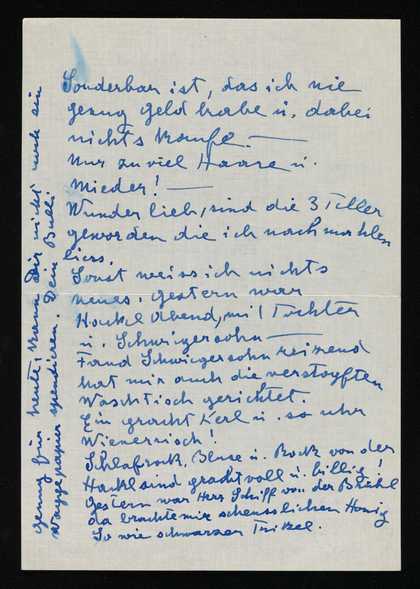 Sonderbar ist, das ich nie
genug Geld habe u. dabei
nichts kaufe. —
Nur zu viel Haare u.
Mieder! —
Wunder lieb, sind die 3 Teller
geworden die ich nachmahlen
liess.
Sonst weiss ich nichts
neues. Gestern war
Hackel Abend, mit Tochter
u. Schwigersohn —
Fand Schwigersohn reizend
hat mir auch die verstopften
Waschtisch gerichtet.
Ein Kerl u. so uhr
Wienerrisch!
Schlafrock, Bluse u. Rock von der
Hackl sind prachtvoll u. billig!
Gestern war Herr Schiff von der Brühl
da brachte mir scheusslichen Honig
So wie schwarzer
genug für heute, kann Dir nicht noch ein
spendieren. Dein Bulli